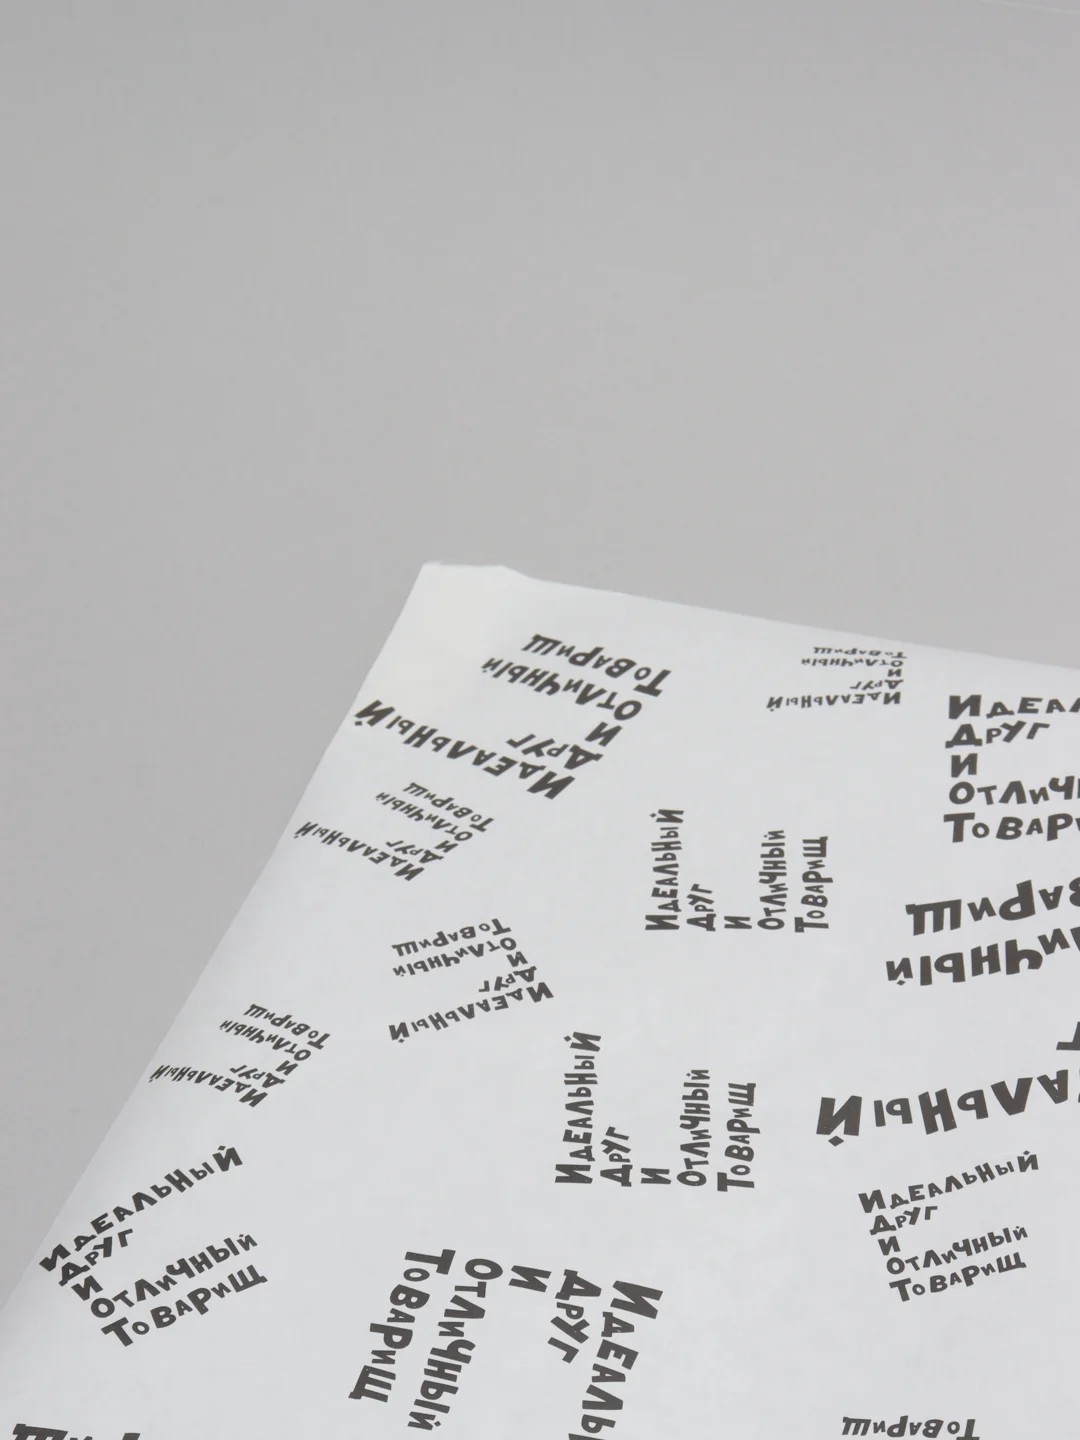 Идеальный
Друг
и
Отличный
Товарищ
Идеальный
Друг
и
Отличный
Товарищ
Идеал
Друг
и
Отличн
Товари
Идеальный
Друг
и
Отличный
Товарищ
Идеальный
Друг
и
Отличный
Товарищ
Идеальный
Друг
и
Отличный
Товарищ
Идеальный
Друг
и
Отличный
Товарищ
Идеальный
Друг
и
Отличный
Товарищ
альный
г
ичный
варищ
Идеальный
Друг
и
Отличный
Товарищ
Идеальный
Друг
и
Отличный
Товарищ
Идеаль
Друг
и
Отличный
Товарищ
Товарищ